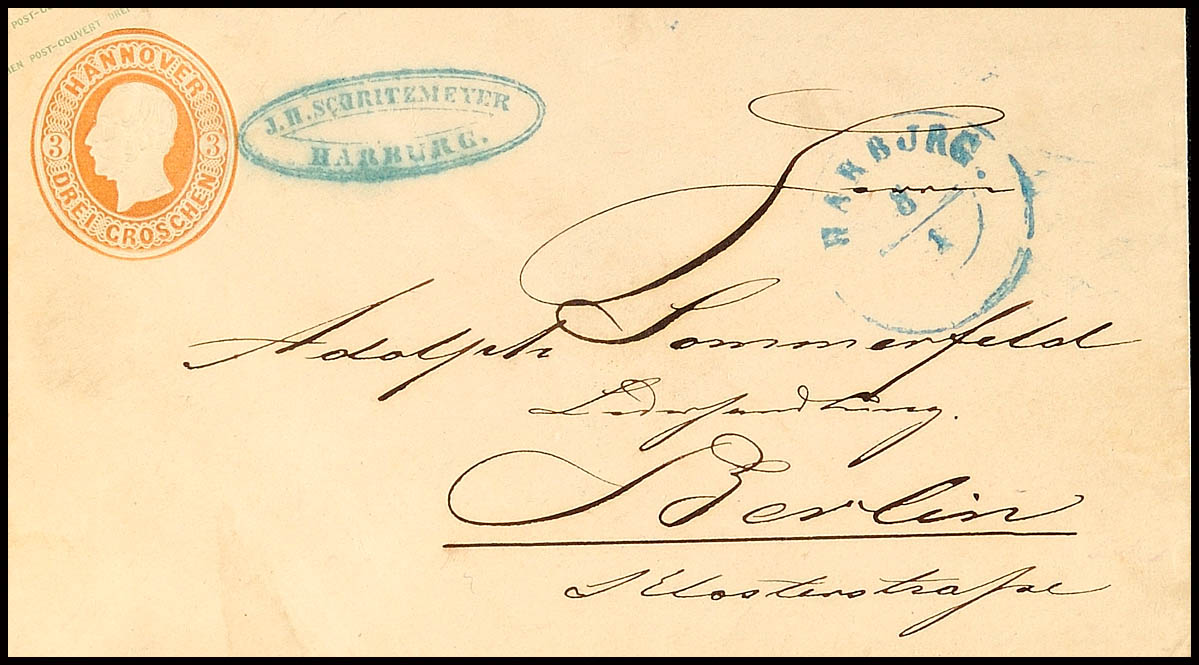 POST-COU
MEN POST-COUVERT DREI
HANNOVER
3 3
DREI GROSCHEN
J.H. SCHRITZMEYER
HARBURG.
HARBURG.
8
1
Herrn
Adolph Sommerfeld
Lederhandlung.
Berlin
Klosterstraße